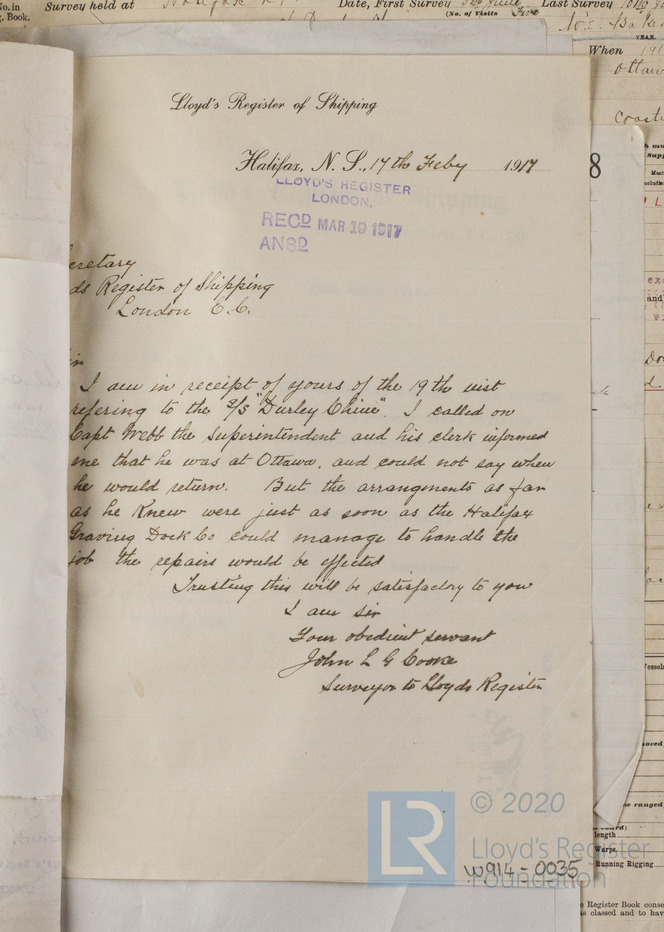 Survey held at
Date, First Survey
Last Survey
(No. of Visits
o. in
. Book.
When
YEAR.
Ottaw
Coast
Lloyd's Register of Shipping
Halifax, N. S., 17th Feby 1917
8
LLOYD'S REGISTER
LONDON.
RECD MAR 19 1917
ANSD
ecretary
ds Register of Shipping
London E.C.
in
I am in receipt of yours of the 19th inst
refering to the S/S "Durley Chine". I called on
Capt Webb the Superintendent and his clerk informed
me that he was at Ottawa, and could not say when
he would return. But the arrangements as far
as he Knew were just as soon as the Halifax
Graving Dock Co could manage to handle the
job the repairs would be effected
Trusting this will be satisfactory to you
I am sir
Your obedient servant
John L G Cooke
Surveyor to Lloyds Register
LR
© 2020
Lloyd's Register
Foundation
W914-0035
and
oved
e ranged
length
Warps,
Running Rigging
e Register Book
s classed and to hav